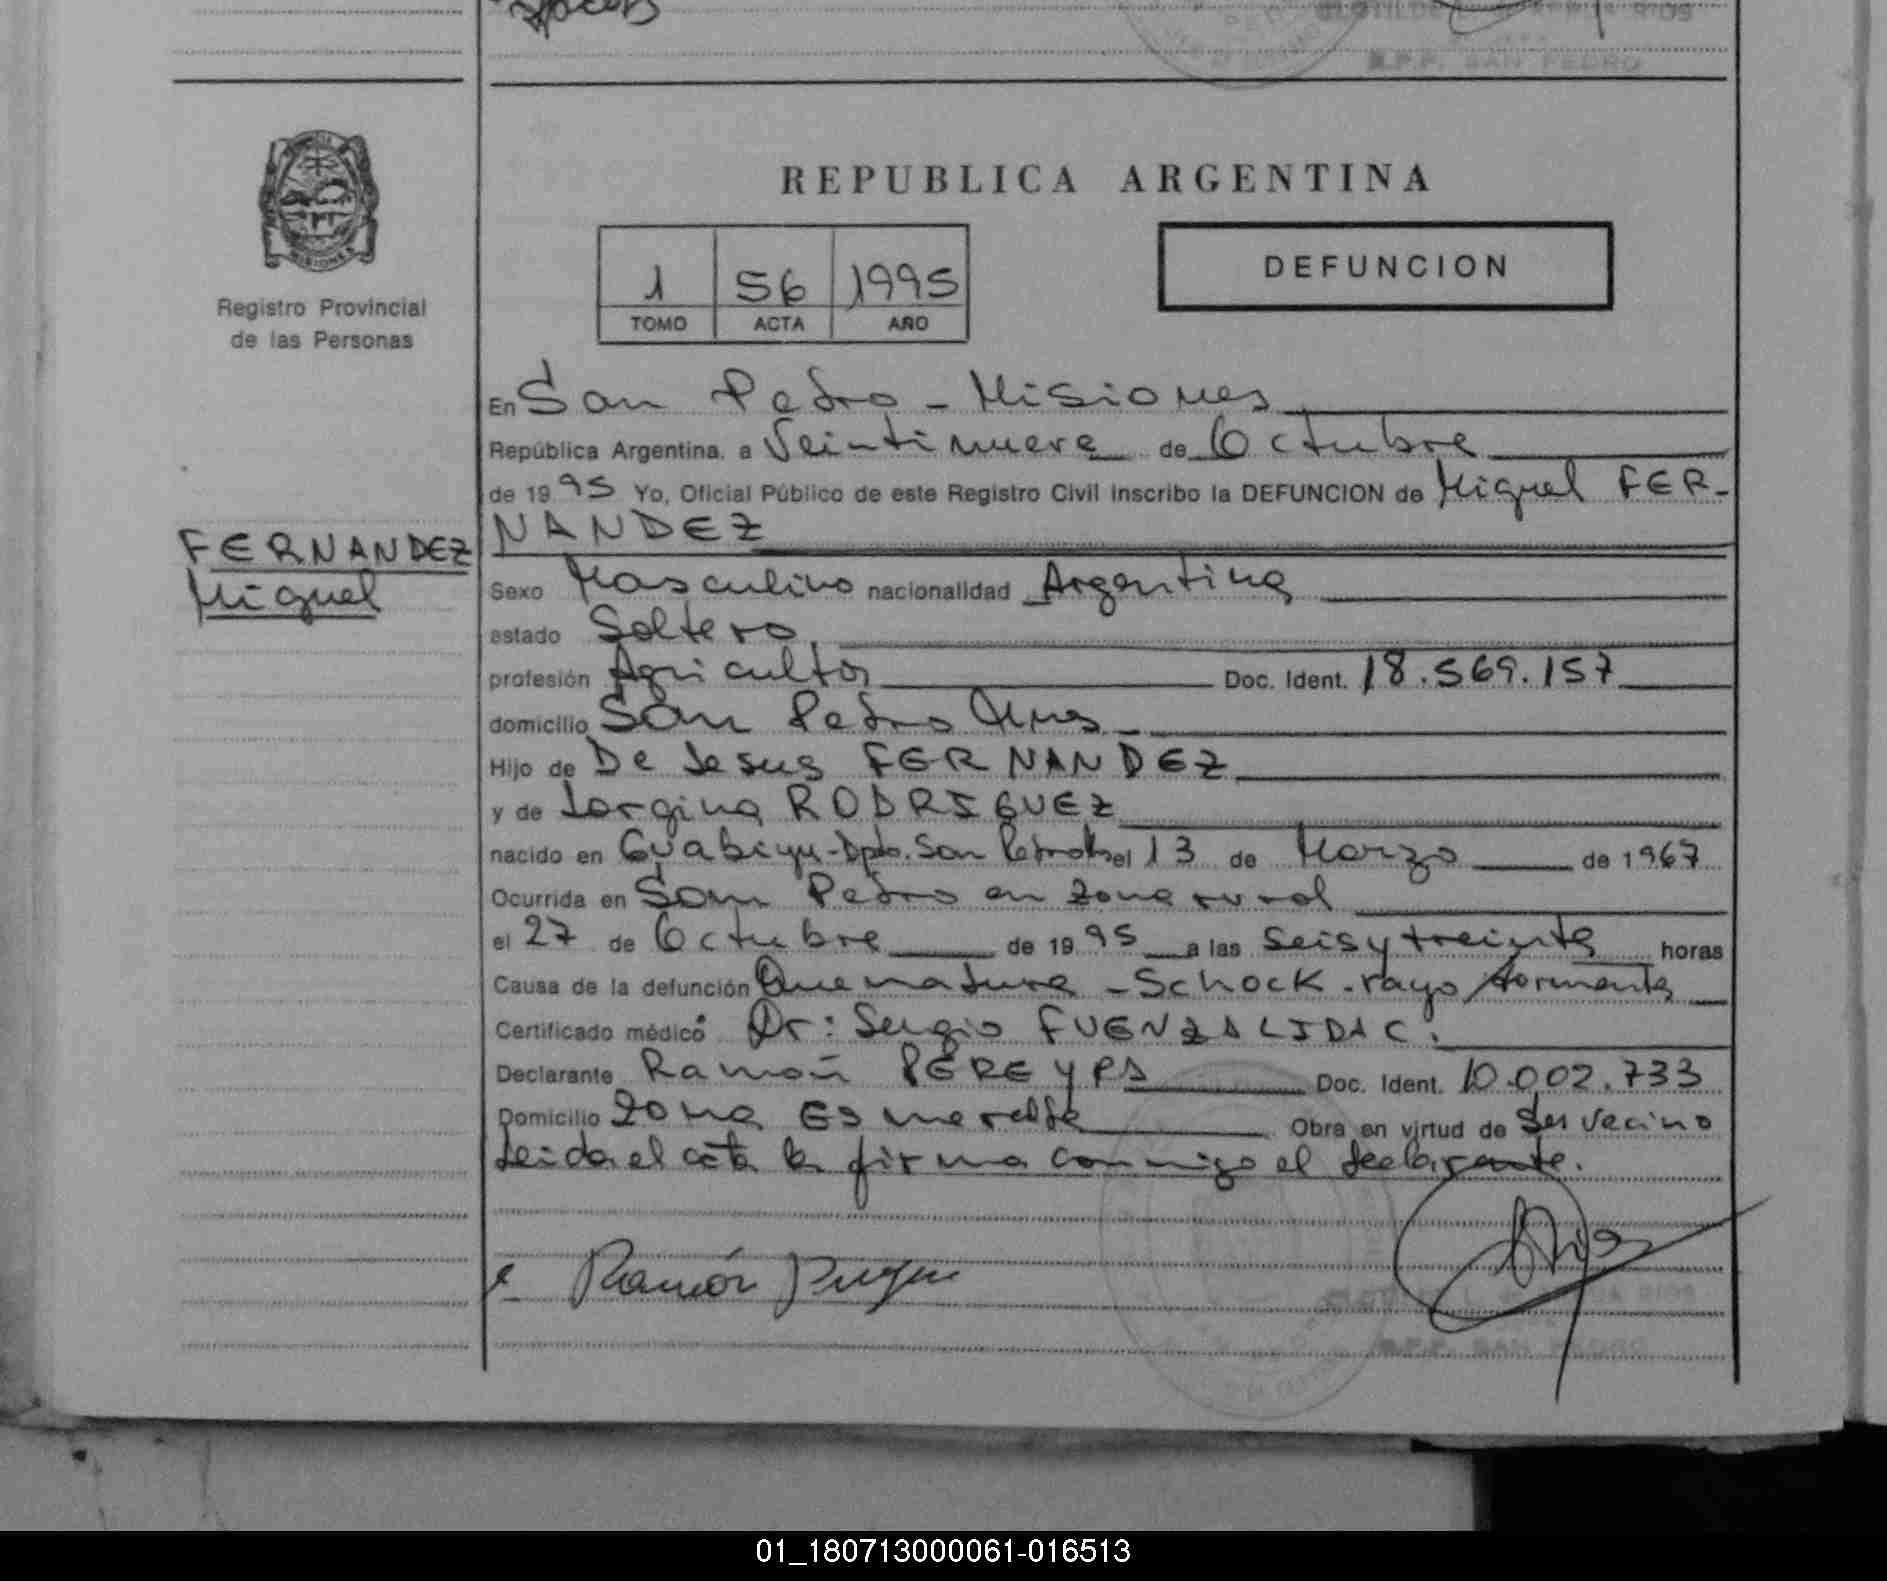 S.P.P. SAN PEDRO
REPUBLICA ARGENTINA
MISIONES
Registro Provincial
de las Personas
1 56 1995
TOMO ACTA AÑO
DEFUNCION
En San Pedro - Misiones
República Argentina, a Veintinueve de Octubre
de 1995 Yo, Oficial Público de este Registro Civil inscribo la DEFUNCION de Miguel FER-
NANDEZ
FERNANDEZ
Miguel
Sexo Masculino nacionalidad Argentina
estado Soltero
profesión Agricultor Doc. Ident. 18.569.157
domicilio San Pedro Mnes
Hijo de De Jesus FERNANDEZ
y de Jorgina RODRIGUEZ
nacido en Guabiyu-Dpto. San Pedro el 13 de Marzo de 1967
Ocurrida en San Pedro en zona rural
el 27 de Octubre de 1995 a las seis y treinta horas
Causa de la defunción Quemadura - Schock - rayo/tormenta
Certificado médico Dr: Sergio FUENZALIDA C.
Declarante Ramón PEREYRA Doc. Ident. 10.002.733
Domicilio zona Esmeralda Obra en virtud de ser vecino
Leida el acta la firma conmigo el declarante.
Ramón
RIOS
SAN PEDRO
01_180713000061-016513